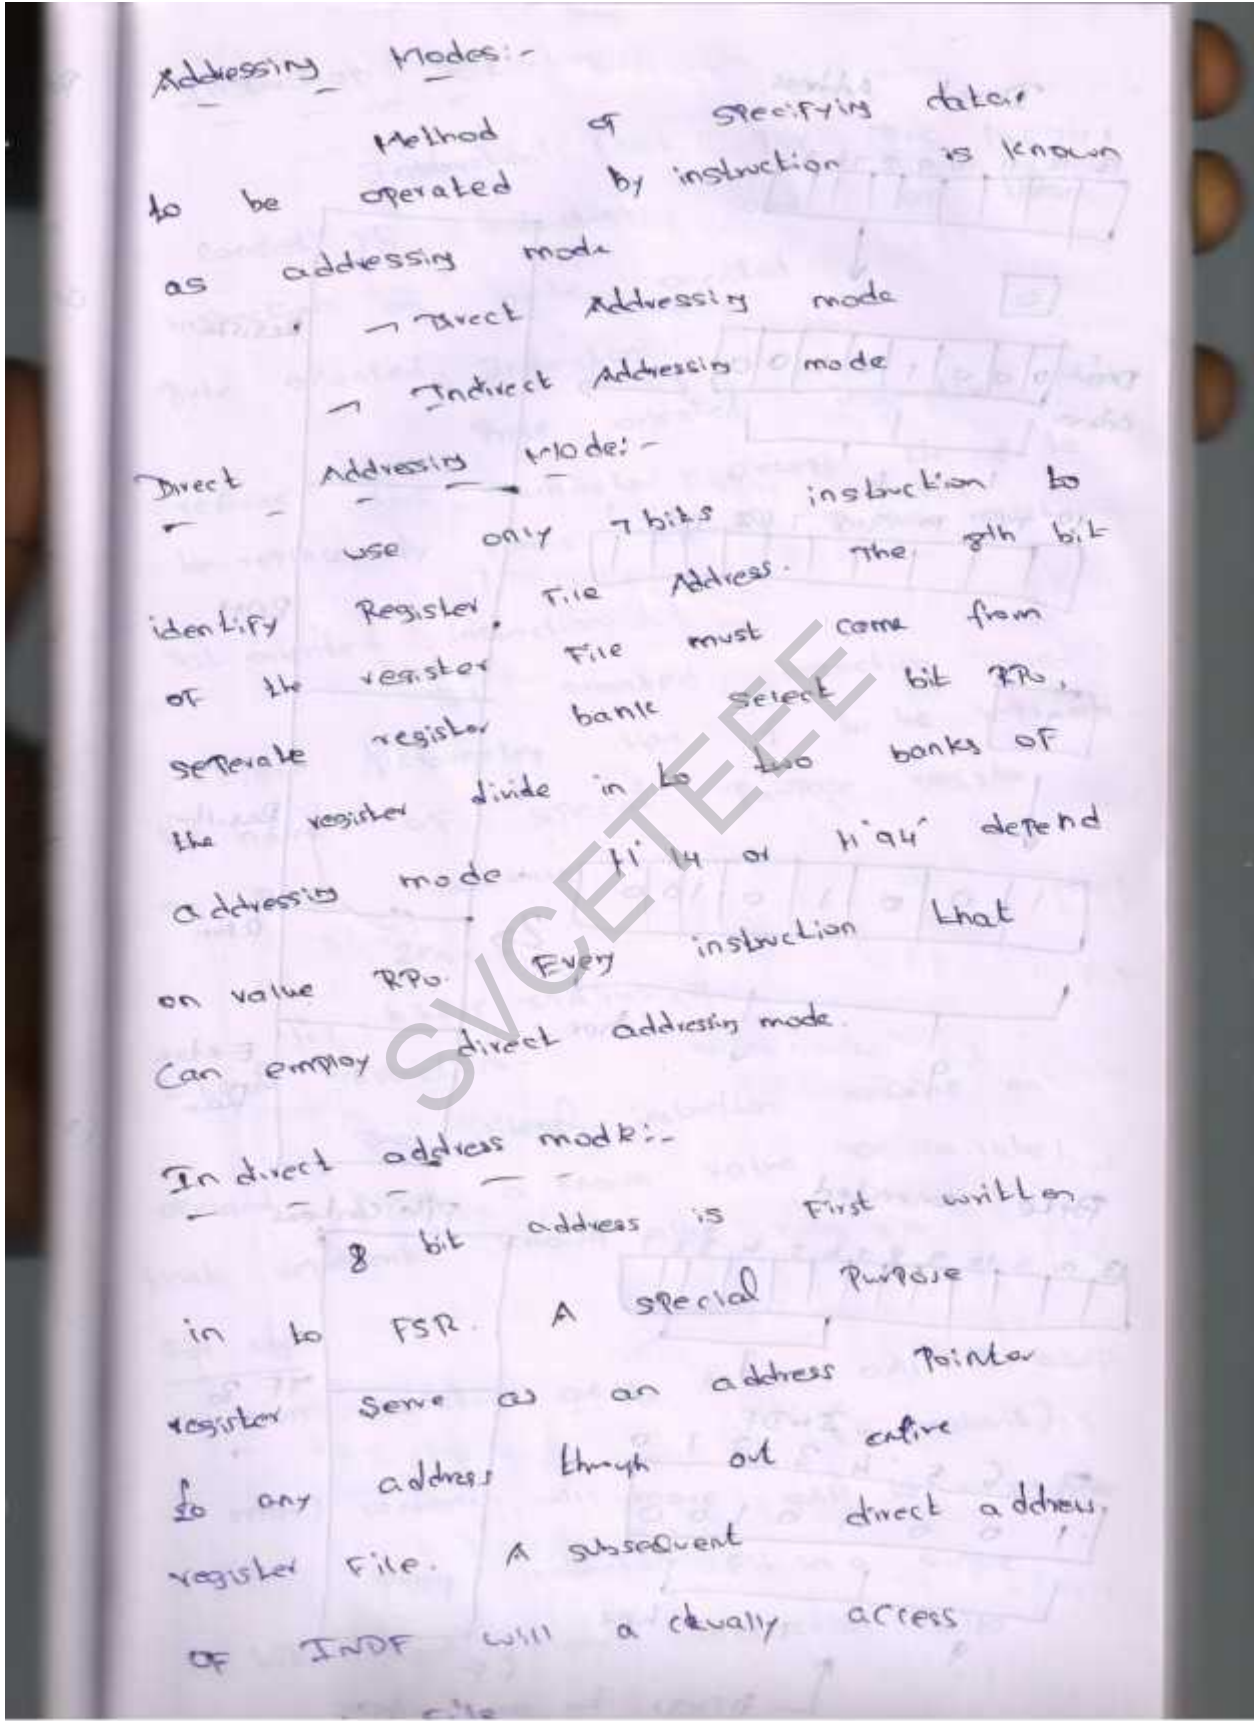 Addressing Modes:-
Method of specifying data
to be operated by instruction is known
as addressing mode
→ Direct Addressing mode
→ Indirect Addressing mode
Direct Addressing Mode:-
use only 7 bits instruction to
identify Register File Address. The 8th bit
of the register File must come from
seperate register bank select bit RP0.
the register divide in to two banks of
addressing mode H'14 or H'94' depend
on value RP0. Every instruction that
Can employ direct addressing mode.
In direct address mode:-
8 bit address is First written
in to FSR. A special Purpose
register serve as an address Pointer
to any address through out entire
register File. A subsequent direct address.
OF INDF will actually access
File
SVCETEEE